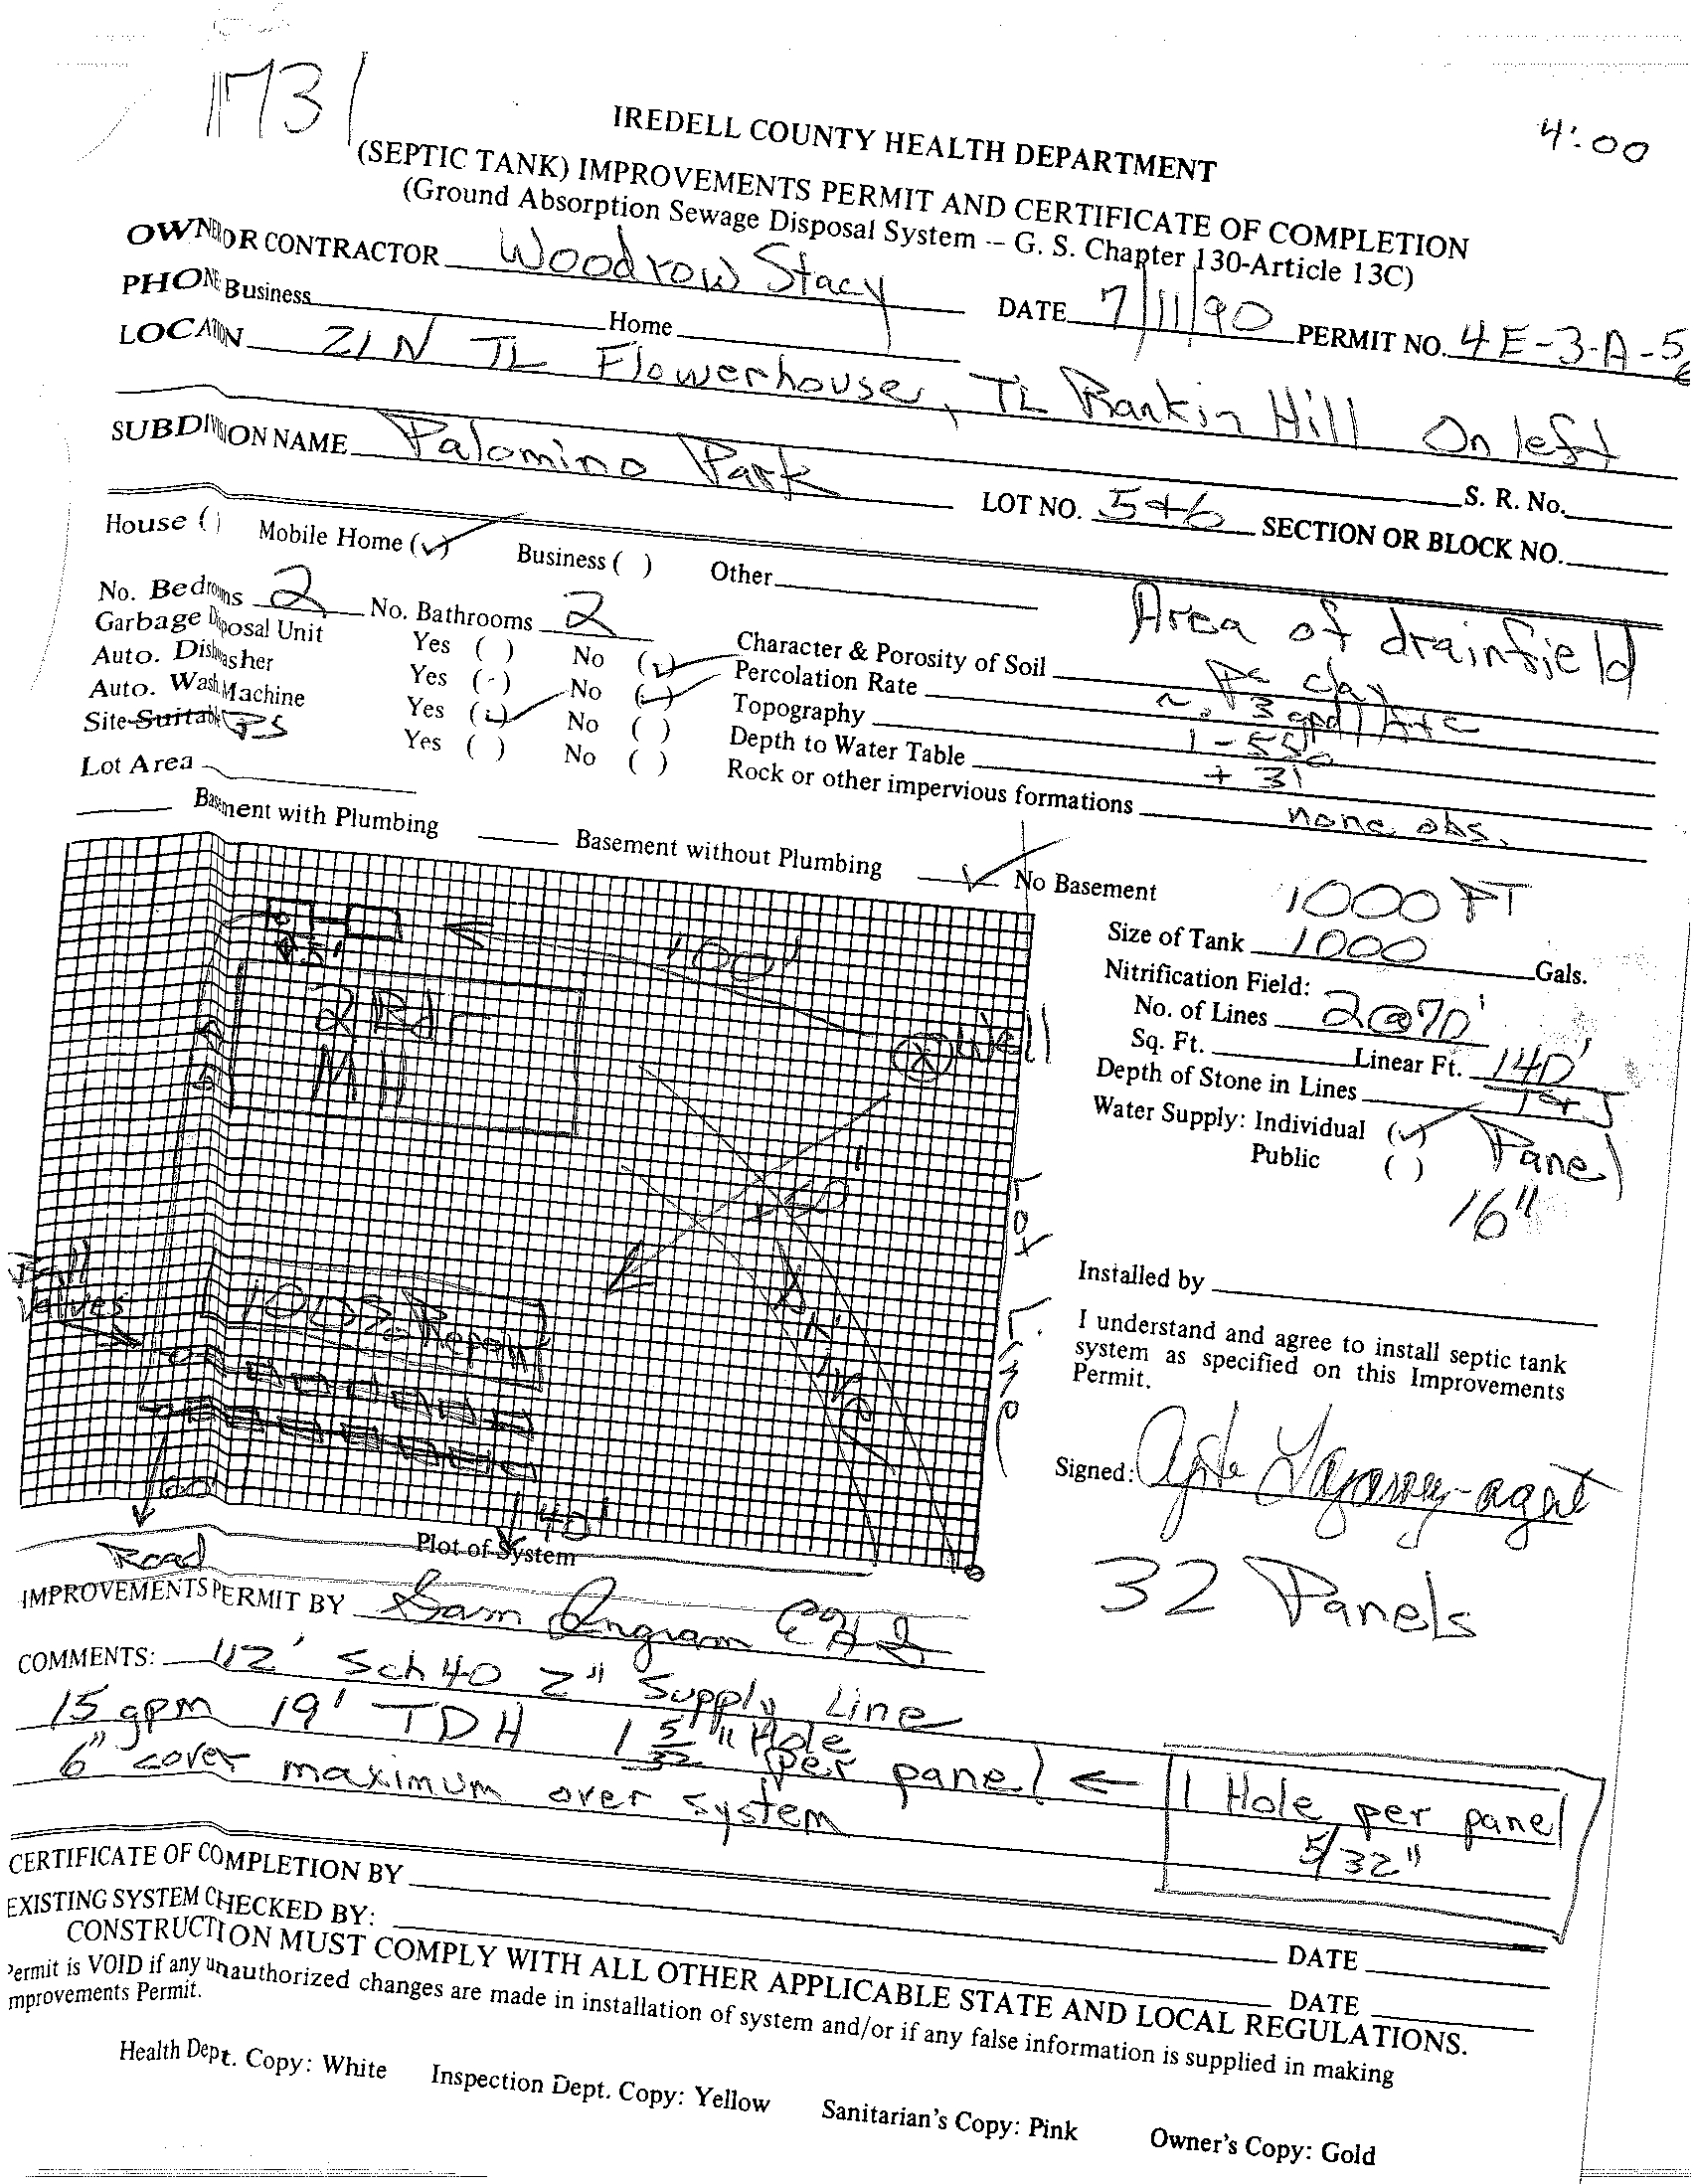 11731
4:00
IREDELL COUNTY HEALTH DEPARTMENT
(SEPTIC TANK) IMPROVEMENTS PERMIT AND CERTIFICATE OF COMPLETION
(Ground Absorption Sewage Disposal System -- G. S. Chapter 130-Article 13C)
OWNER OR CONTRACTOR Woodrow Stacy DATE 7/11/90 PERMIT NO. 4E-3-A-5
PHONE: Business Home
LOCATION 21N TL Flowerhouse, TL Rankin Hill On left
S. R. No.
SUBDIVISION NAME Palomino Park LOT NO. 5+6 SECTION OR BLOCK NO.
House ( ) Mobile Home (✓) Business ( ) Other
No. Bedrooms 2 No. Bathrooms 2
Area of drainfield
Garbage Disposal Unit Yes ( ) No (✓) Character & Porosity of Soil PS clay
Auto. Dishwasher Yes (-) No (✓) Percolation Rate ~.3 gpd/ft²
Auto. Wash Machine Yes (✓) No ( ) Topography 1-5%
Site Suitable PS Yes ( ) No ( ) Depth to Water Table + 3'
Lot Area Rock or other impervious formations none obs.
Basement with Plumbing Basement without Plumbing ✓ No Basement
1000 PT
Size of Tank 1000 Gals.
Nitrification Field:
No. of Lines 2@70'
Sq. Ft. Linear Ft. 140'
Depth of Stone in Lines
Water Supply: Individual (✓) Panel
Public ( )
16"
100'
2 Bdr
MH
Well
Lot Line
Drive
Ball
Valves
100% Repair
60'
40'
Road
Plot of System
Installed by
I understand and agree to install septic tank
system as specified on this Improvements
Permit.
Signed: agent
32 Panels
IMPROVEMENTS PERMIT BY Sam Ingram
COMMENTS: 112' Sch 40 2" Supply Line
15 gpm 19' TDH 1 5/32" Hole per panel ←
1 Hole per panel
5/32"
6" cover maximum over system
CERTIFICATE OF COMPLETION BY DATE
EXISTING SYSTEM CHECKED BY: DATE
CONSTRUCTION MUST COMPLY WITH ALL OTHER APPLICABLE STATE AND LOCAL REGULATIONS.
Permit is VOID if any unauthorized changes are made in installation of system and/or if any false information is supplied in making
mprovements Permit.
Health Dept. Copy: White Inspection Dept. Copy: Yellow Sanitarian's Copy: Pink Owner's Copy: Gold